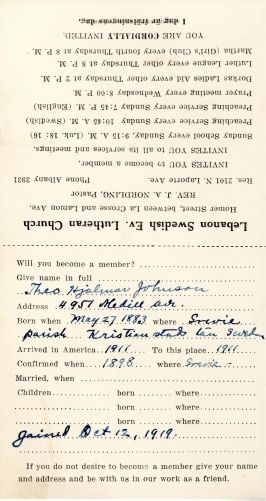 Lebanon Swedish Ev. Lutheran Church
Homer Street, between La Crosse and Lamon Ave.
REV. J. A. NORDLING, Pastor,
Res. 2101 N. Laporte Ave. Phone Albany 3931
INVITES YOU to become a member.
INVITES YOU to all its services and meetings.
Sunday School every Sunday, 9:15 A. M. (Luk. 18: 16)
Preaching Service every Sunday 10:45 A. M. (Swedish)
Preaching Service every Sunday 7:45 P. M. (English)
Prayer meeting every Wednesday 8:00 P. M.
Dorkas Ladies Aid every other Thursday at 2 P. M.
Luther League every other Thursday at 8 P. M.
Martha (Girls') Club every fourth Thursday at 8 P. M.
YOU ARE CORDIALLY INVITED.
I dag är frälsningens dag.
Will you become a member?
Give name in full
Theo Hjalmar Johnson
Address 4951 Medill ave.
Born when May 27 1883 where Srevie
parish Kristianstads län Sweden
Arrived in America 1911 To this place 1911
Confirmed when 1898 where Srevie -
Married, when
Children born where
born where
born where
joined Oct 12, 1919.
If you do not desire to become a member give your name
and address and be with us in our work as a friend.